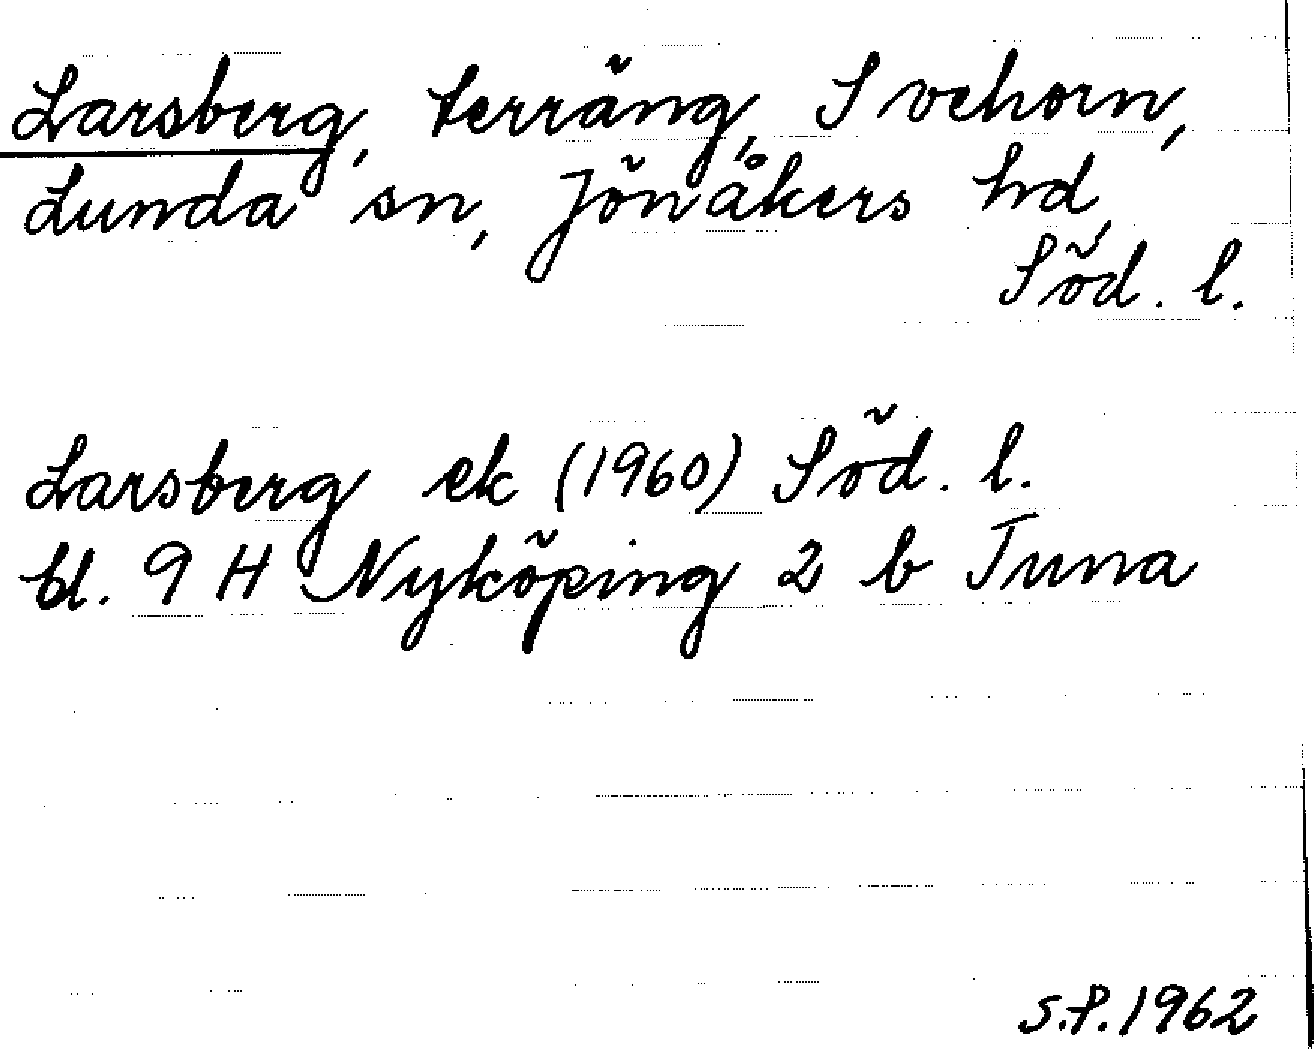 Larsberg, terräng, S Vehorn,
Lunda sn, Jönåkers hd,
Söd. l.
Larsberg ek (1960) Söd. l.
bl. 9 H Nyköping 2 b Tuna
S.P. 1962